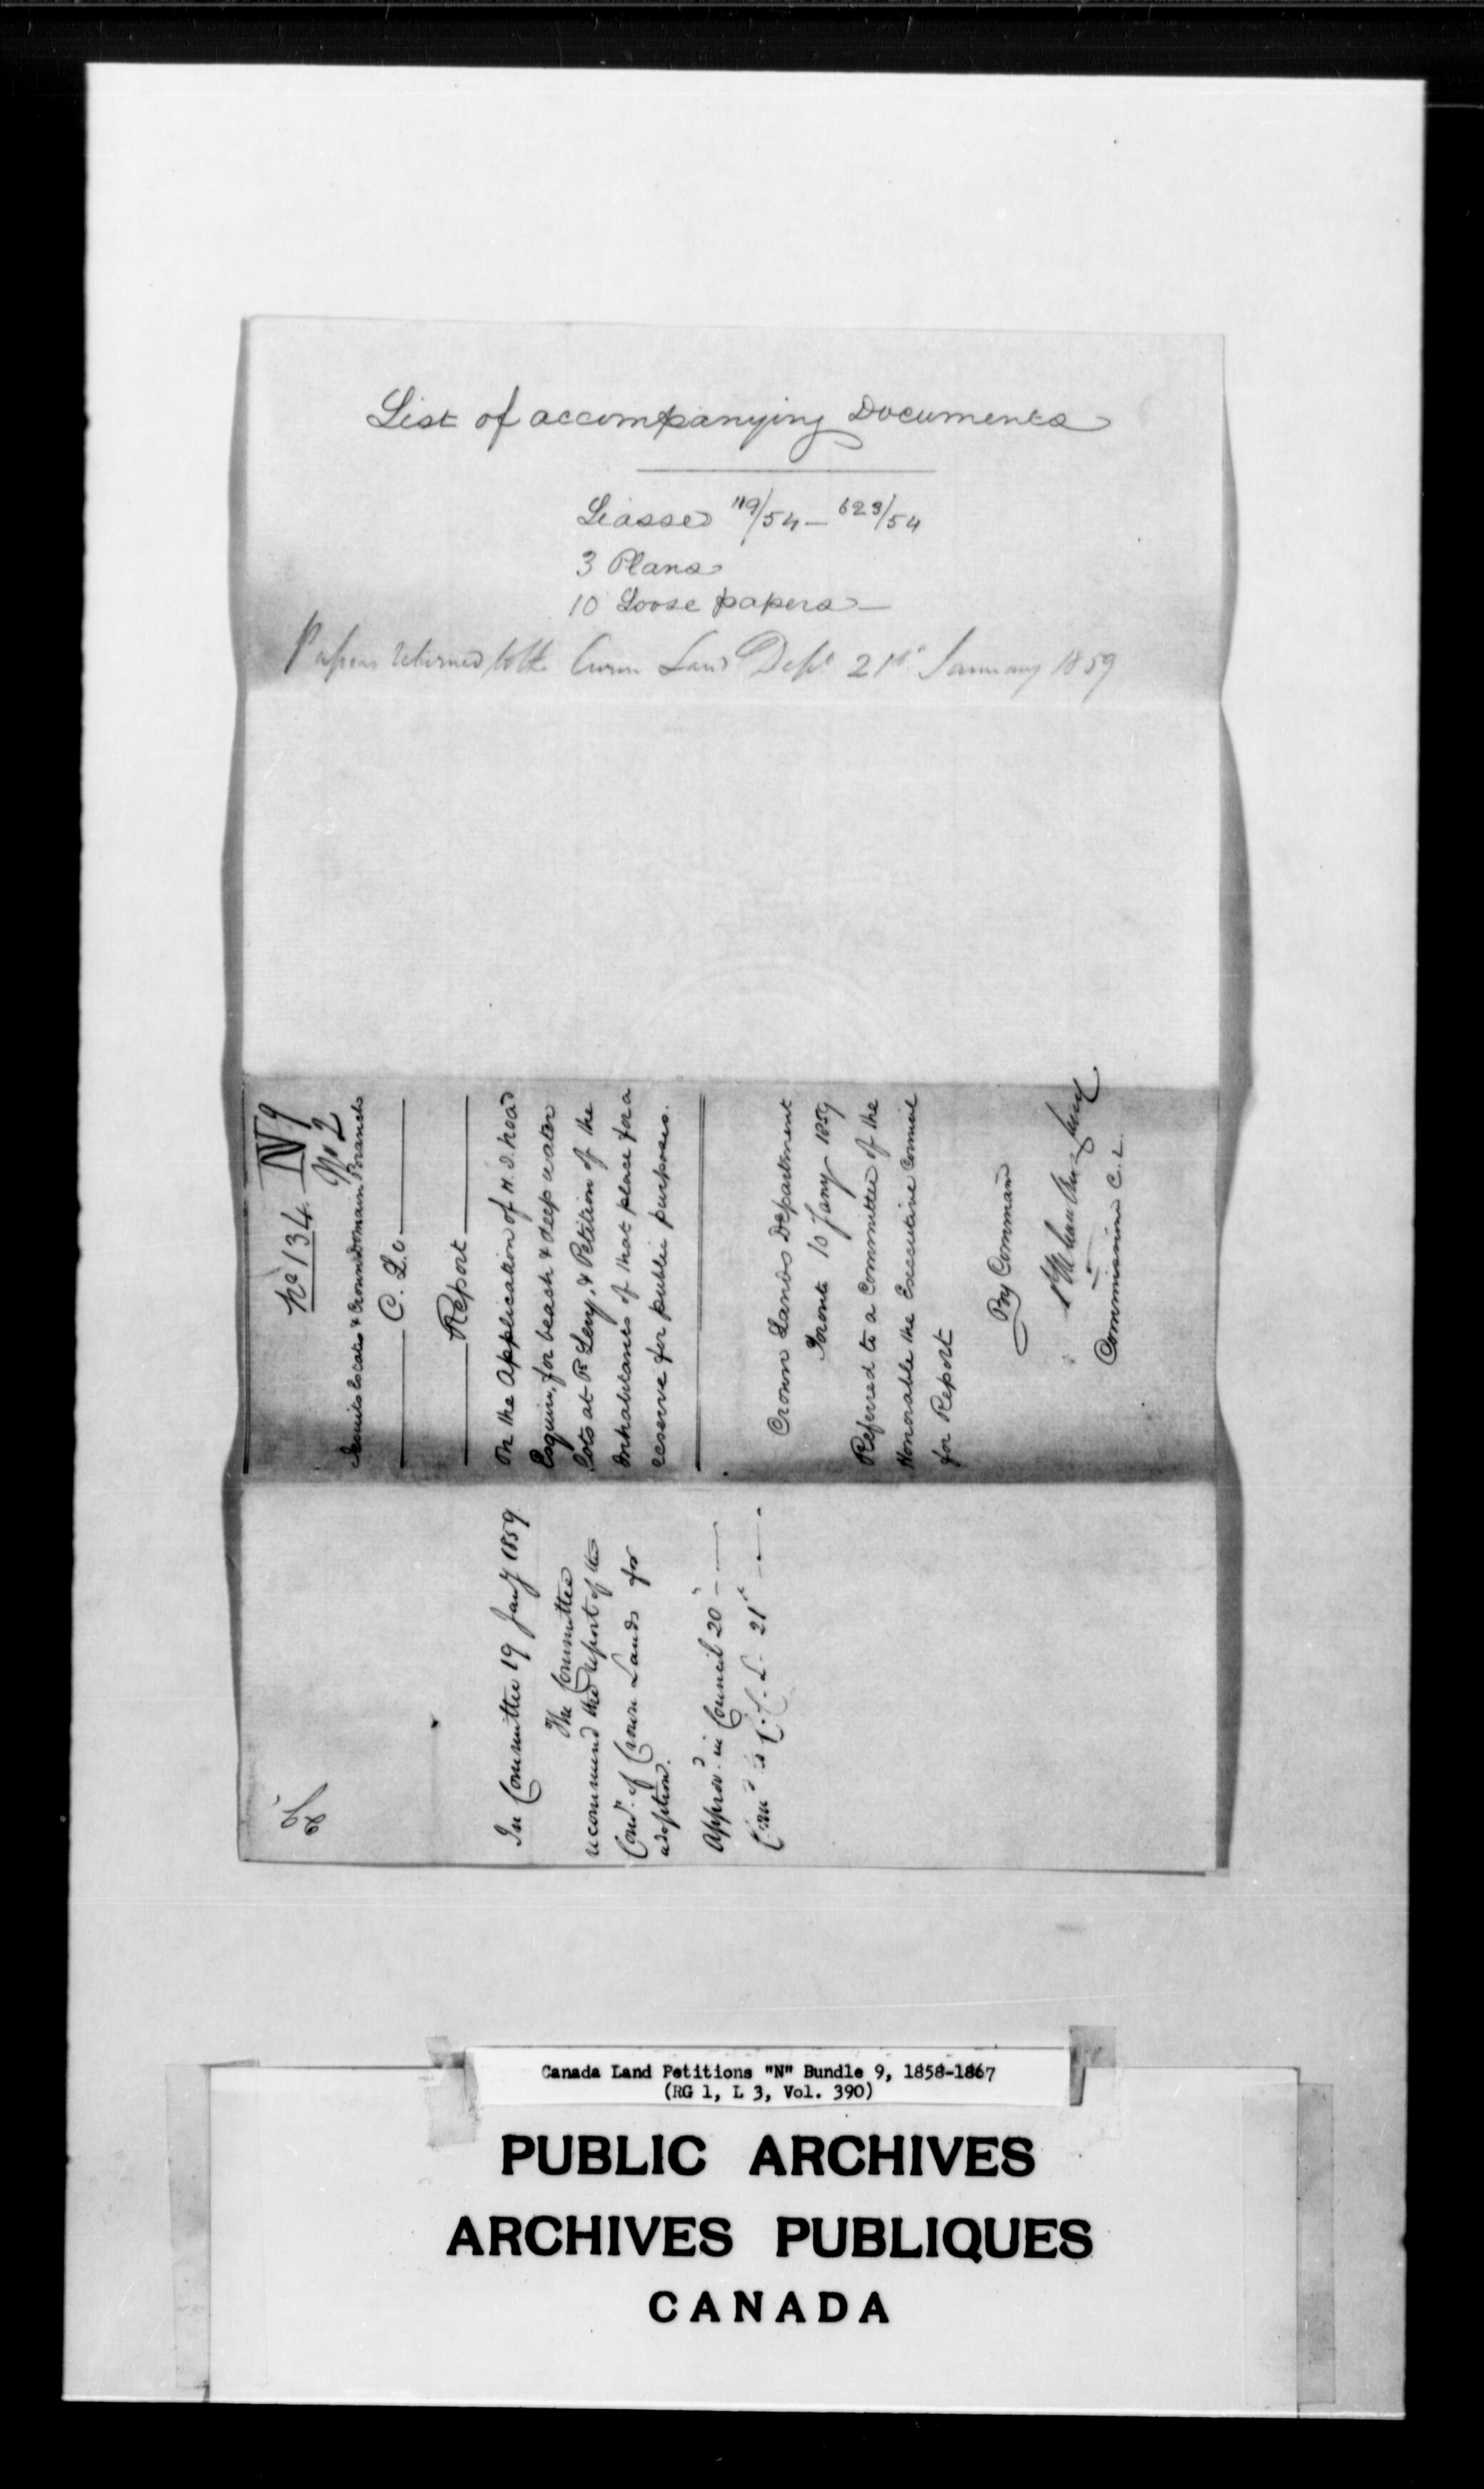 List of accompanying Documents
Liasses 119/54 – 623/54
3 Plans
10 Loose papers —
Papers returned to the Crown Land Dept 21st January 1859
No 134 N 9
No 2
Jesuits Estates & Crown Domain Branch
C. L. O.
Report
On the Application of H. J. Noad
Esquire, for beach & deep water
Lots at Pt Levy, & Petition of the
Inhabitants of that place for a
reserve for public purposes.
Crown Lands Department
Toronto 10 Jany 1859
Referred to a Committee of the
Honorable the Executive Council
for Report
By Command
Commissioner C. L.
In Committee 19 Jany 1859
The Committee
recommend the report of the
Comr. of Crown Lands for
adoption.
Approvd. in Council 20" —
C. C. L. 21st —
Canada Land Petitions "N" Bundle 9, 1858-1867
(RG 1, L 3, Vol. 390)
PUBLIC ARCHIVES
ARCHIVES PUBLIQUES
CANADA